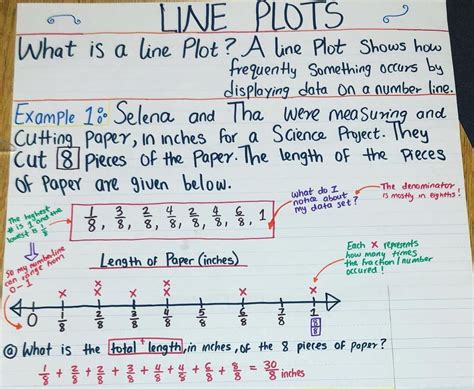 LINE PLOTS
What is a line Plot? A line Plot Shows how
frequently Something occurs by
displaying data on a number line.
Example 1: Selena and Tha were measuring and
Cutting Paper, in inches for a Science Project. They
Cut 8 Pieces of the Paper. The length of the Pieces
of Paper are given below.
The highest
# is 1 and the
lowest is 1/8
1/8, 3/8, 2/8, 4/8, 2/8, 4/8, 6/8, 1
What do I
notice about
my data set?
The denominator
is mostly in eighths!
So my numberline
can range from
0-1
Length of Paper (inches)
Each x represents
how many times
the fraction/number
occured!
x x x x x x x x
0 1/8 2/8 3/8 4/8 5/8 6/8 7/8 1
8/8
@ What is the total length, in inches, of the 8 pieces of paper?
1/8 + 2/8 + 2/8 + 3/8 + 4/8 + 4/8 + 6/8 + 8/8 = 30/8 inches